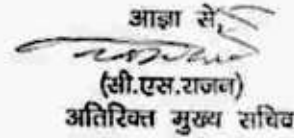 आज्ञा से,
(सी.एस.राजन)
अतिरिक्त मुख्य सचिव